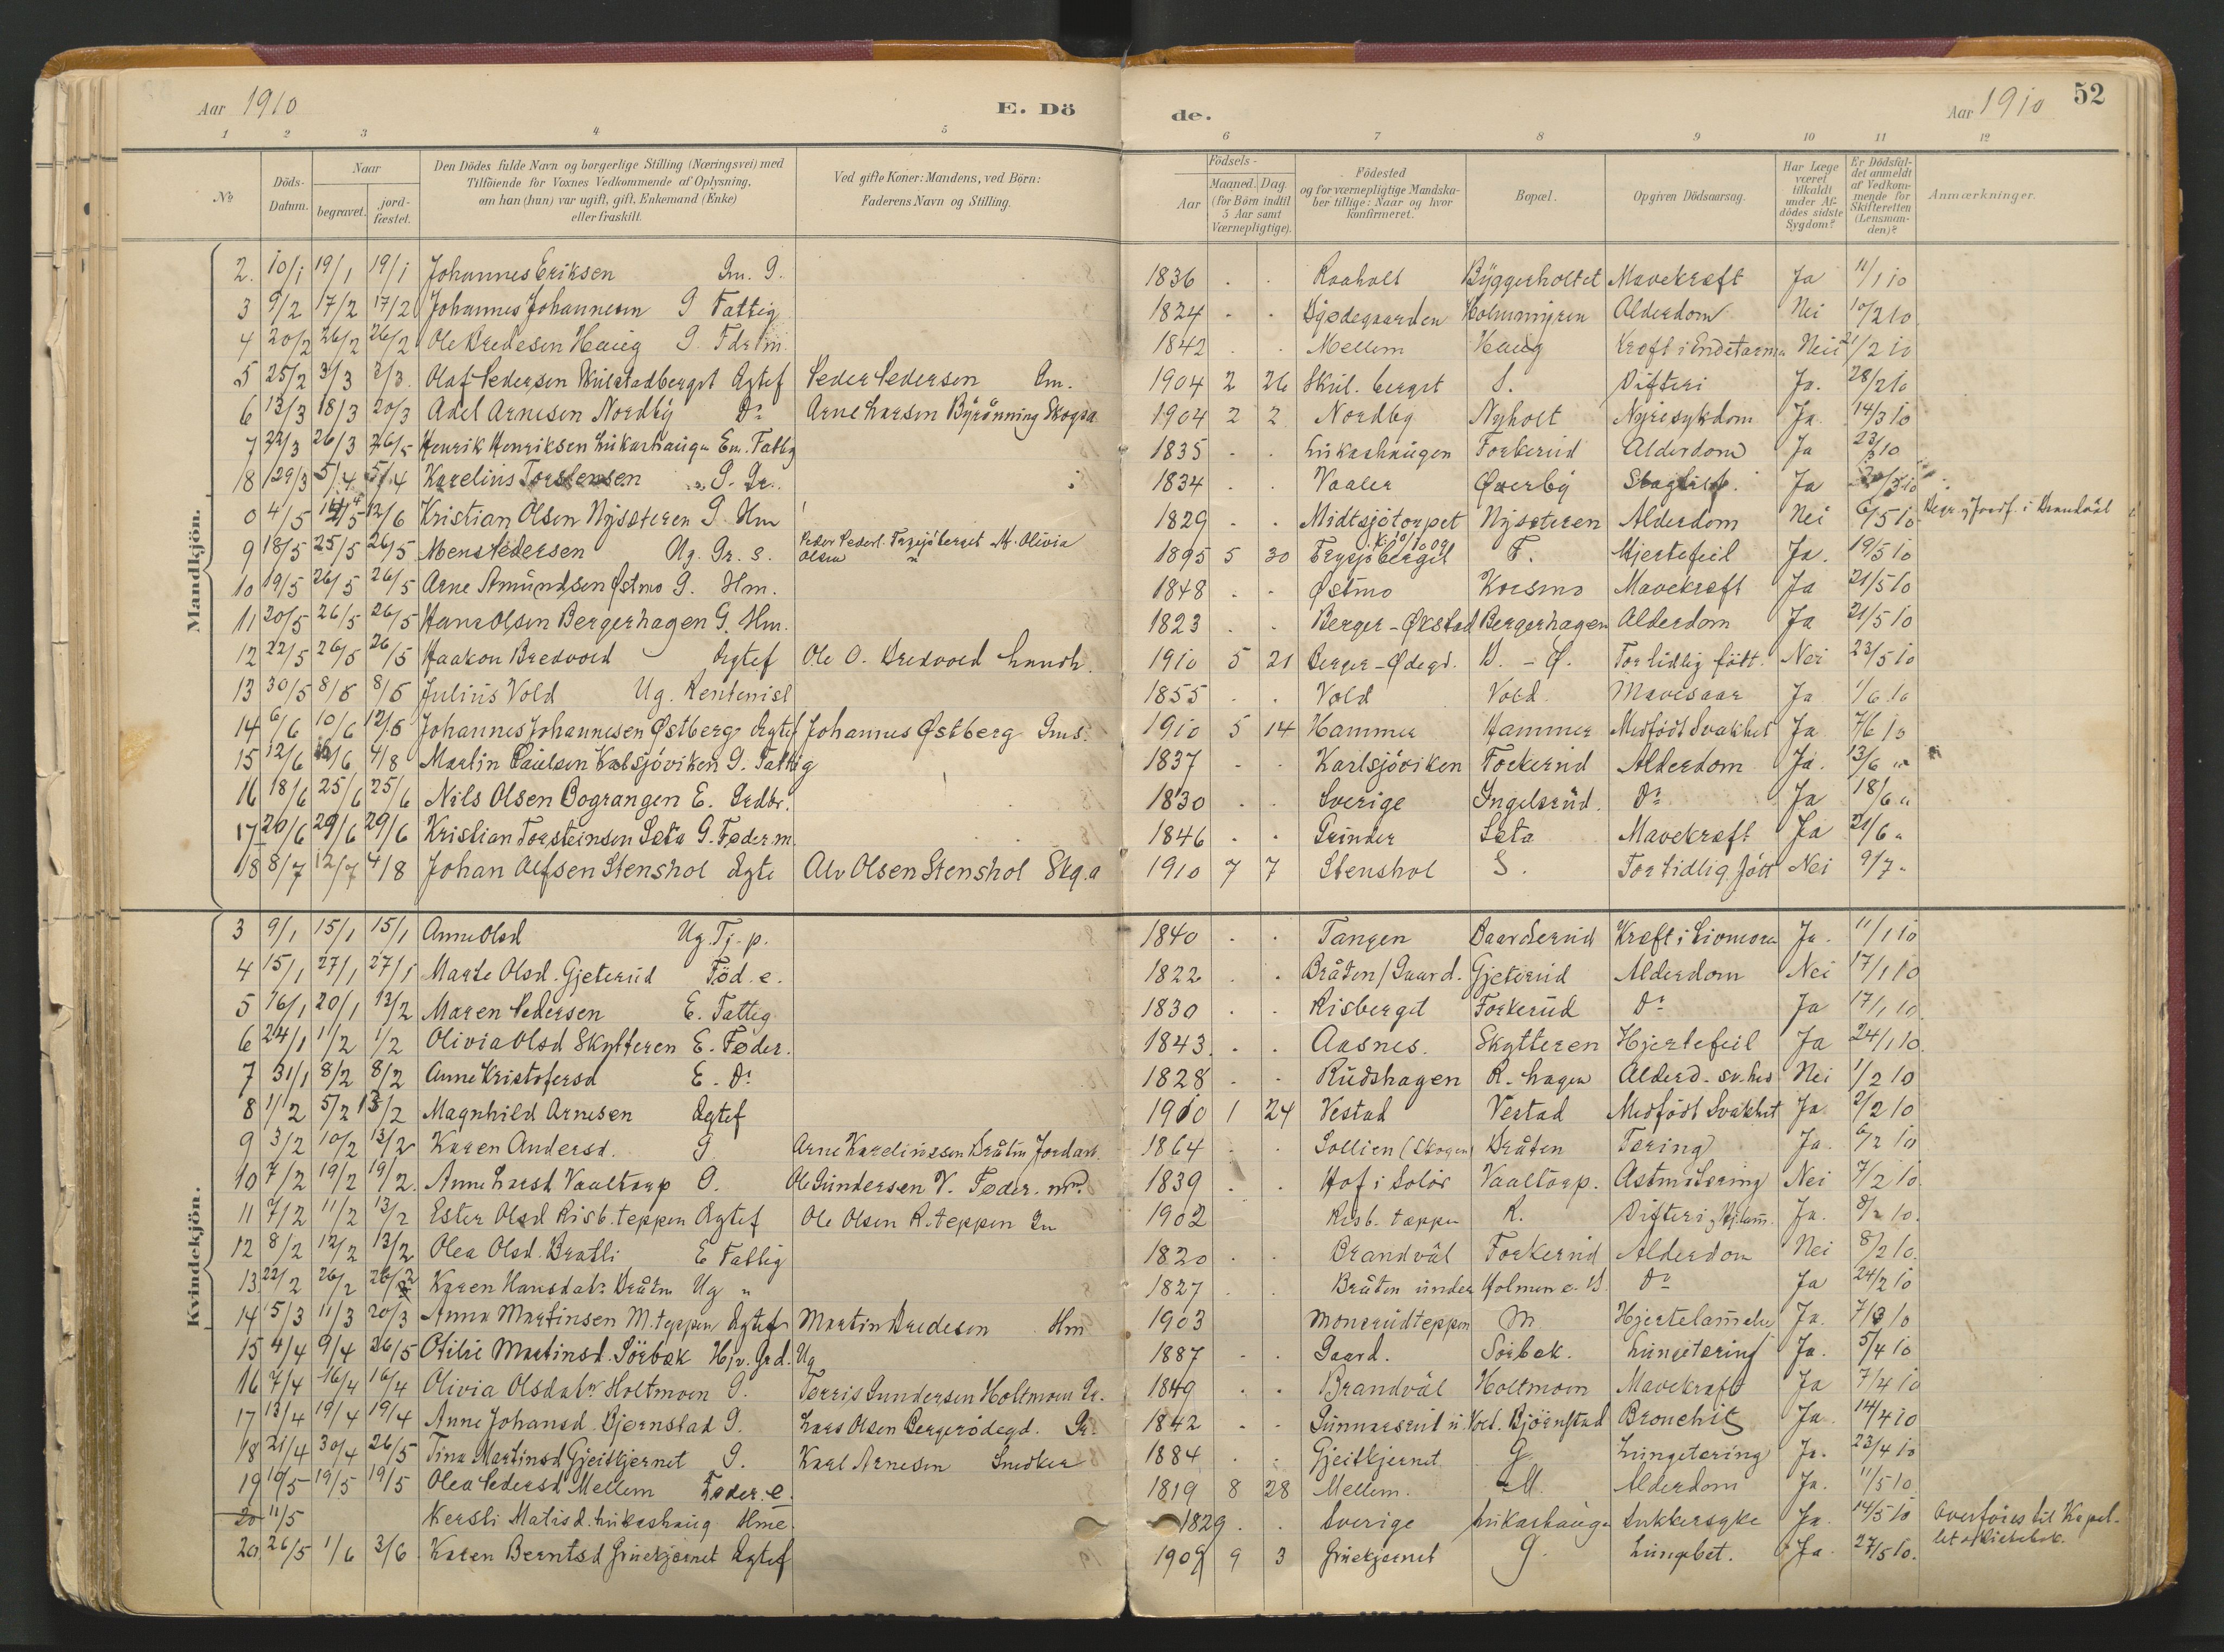 Aar 1910 E. Dö de. Aar 1910 52
1 2 3 4 5 6 7 8 9 10 11 12
No Döds-Datum. Naar begravet. jord-fæstet. Den Dödes fulde Navn og borgerlige Stilling (Næringsvei) med Tilföiende for Voxnes Vedkommende af Oplysning, om han (hun) var ugift, gift, Enkemand (Enke) eller fraskilt. Ved gifte Koner: Mandens, ved Börn: Faderens Navn og Stilling. Födsels- Aar Maaned. Dag. (for Börn indtil 5 Aar samt Værnepligtige). Födested og for værnepligtige Mandska-ber tillige: Naar og hvor konfirmeret. Bopæl. Opgiven Dödsaarsag. Har Læge været tilkaldt under Af-dödes sidste Sygdom? Er Dödsfal-det anmeldt af Vedkom-mende for Skifteretten (Lensman-den)? Anmærkninger.
Mandkjön.
2. 10/1 19/1 19/1 Johannes Eriksen Gm. G. 1836 . . Raaholt Byggerholtet Mavekræft Ja 11/1 10
3 9/2 17/2 17/2 Johannes Johannesen G Fattig 1824 - - Bygdegaarden Holmmyren Alderdom Nei 10/2 10
4 20/2 26/2 26/2 Ole Bredesen Haug G. Fdrm. 1842 . . Mellem Haug Kræft i Endetarmen Nei 21/2 10
5 25/2 3/3 3/3. Olaf Pedersen Skulstadberget Ægtef Peder Pedersen Gm. 1904 2 26 Skul. berget S. Difteri Ja. 28/2 10
6 13/3 18/3 20/3 Adel Arnesen Nordby Do Arne Larsen Byrönning Skogsa. 1904 2 2 Nordby Nyholt Nyresykdom Ja. 14/3 10
7 22/3 26/3 26/5 Henrik Henriksen Lukashaugen Em. Fattig 1835 . . Lukashaugen Forkerud Alderdom Ja 23/3 10
8 29/3 5/4 5/4 Karelius Torstensen G. Gr. 1834 . . Vaaler Øverby Ja
0 4/5 12/6 Kristian Olsen Nysæteren G Hm 1829 . . Midtsjötorpet Nysæteren Alderdom Nei 6/5 10 Begr. og Jordf. i Brandvål
9 18/5 25/5 26/5 Mens Pedersen Ug. Gr. s. Peder Pederl. Frysjöberget M. Olivia Olsen 1895 5 30 Frysjöberget F. Hjertefeil Ja. 19/5 10
10 19/5 26/5 26/5 Arne Amundsen Østmo G. Hm. 1848 . . Østmo Korsmo Mavekræft Ja 21/5 10
11 20/5 26/5 26/5 Hans Olsen Bergerhagen G. Hm. 1823 . . Berger-Økstad Bergerhagen Alderdom Ja 21/5 10
12 22/5 26/5 26/5 Haakon Bredvold Ægtef Ole O. Bredvold Landh. 1910 5 21 Berger-Ødegd. B.-Ø. For tidlig födt. Nei 23/5 10
13 30/5 8/6 8/6 Julius Vold Ug. Rentenist 1855 . . Vold Vold. Mavesaar Ja 1/6 10
14 6/6 10/6 12/6 Johannes Johannesen Østberg Ægtef Johannes Østberg Gms. 1910 5 14 Hammer Hammer Medfödt Svakhet Ja 7/6 10
15 12/6 4/8 Martin Paulsen Karlsjöviken G. Fattig 1837 - - Karlsjöviken Forkerud Alderdom Ja. 13/6 "
16 18/6 25/6 25/6 Nils Olsen Bograngen E. Grdbr. 1830 . . Sverige Ingelsrud. Do Ja 18/6 "
17 20/6 29/6 29/6 Kristian Torsteinsen Sæta G. Føder.m. 1846 . . Grinder Sæta Mavekræft Ja 21/6 "
18 8/7 12/7 4/8 Johan Alfsen Stenshol Ægte Alv Olsen Stenshol Skg.a 1910 7 7 Stenshol S. For tidlig födt Nei 9/7 "
Kvindekjön.
3 9/1 15/1 15/1 Anne Olsd Ug. Tj.p. 1840 . . Tangen Baarderud Kræft i Livmoren Ja. 11/1 10
4 15/1 27/1 27/1 Marte Olsd. Gjeterud Föd. e. 1822 . . Bråten/Gaard. Gjeterud Alderdom Nei 17/1 10
5 16/1 20/1 13/2 Maren Pedersen E. Fattig 1830 . . Risberget Forkerud Do Ja 17/1 10.
6 24/1 1/2 1/2 Olivia Olsd Skytteren E. Føder. 1843. . . Aasnes. Skytteren Hjertefeil Ja 24/1 10.
7 31/1 8/2 8/2 Anne Kristofersd E. Do 1828 - - Rudshagen R.hagen Alderd.sv.hed Nei 1/2 10
8 1/2 5/2 13/2 Magnhild Arnesen Ægtef 1910 1 24 Vestad Vestad Medfödt Svakhet Ja 2/2 10
9 3/2 10/2 13/2 Karen Andersd. G Arne Karelinssen Bråten Jordarb. 1864 - . Sollien (Skogen) Bråten Tæring Ja. 6/2 10
10 7/2 19/2 19/2. Anne Larsd Vaaltorp G. Ole Gundersen V. Føder.m. 1839 . . Hof i Solör Vaaltorp. Astmatæring Nei 7/2 10.
11 7/2 11/2 13/2 Ester Olsd Risb.teppen Ægtef Ole Olsen R.teppen Gm 1902 Risb. tæppen R. Difteri, Hj.lam. Ja. 8/2 10.
12 8/2 12/2 13/2 Olea Olsd. Bratli E Fattig 1820 . . Brandvål Forkerud Alderdom Nei 8/2 10.
13 22/2 26/2 26/2 Karen Hansdatr Bråten Ug " 1827 . . Bråten under Holmen ø. B. Do Ja 24/2 10
14 5/3 11/3 20/3 Anna Martinsen M.teppen Ægtef Martin Bredesen Hm 1903 Monsrudteppen M. Hjertelammelse Ja. 7/3 10
15 4/4 9/4 26/5 Otilie Martinsd. Sörbæk Hjv. Grd. Ug 1887 - - Gaard. Sörbæk. Lungetæring Ja. 5/4 10
16 7/4 16/4 16/4 Olivia Olsdatr Holtmoen G. Terris Gundersen Holtmoen Gr. 1849 . . Brandvål Holtmoen Mavekræft Ja 7/4 10
17 13/4 19/4 19/4 Anne Johansd. Bjørnstad G. Lars Olsen Bergerödegd. Gr 1842 . - Gunnarsrud u. Vold. Björnstad Bronchit Ja. 14/4 10
18 21/4 30/4 26/5 Tina Martinsd Gjeitkjernet G. Karl Arnesen Snedker 1884 . . Gjeitkjernet G. Lungetæring Ja. 23/4 10
19 10/5 19/5 19/5 Olea Pedersd Mellem Føder. e. 1819 8 28 Mellem. M. Alderdom Ja. 11/5 10.
20 11/5 Kersti Matisd. Lukashaug Hme. 1829 . . Sverige Lukashaugen Sukkersyke Ja. 14/5 10 Overföres til Kapellets Kirkebok.
20 26/5 1/6 3/6 Karen Berntsd Gruekjernet Ægtef 1909 9 3 Gruekjernet G. Lungebet. Ja. 27/5 10.